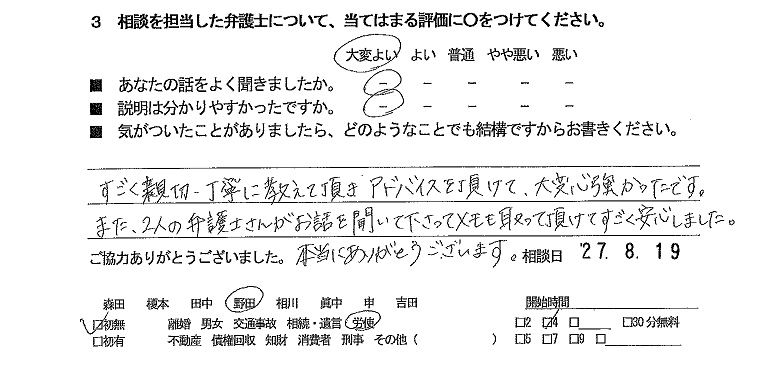 3 相談を担当した弁護士について、当てはまる評価に〇をつけてください。
大変よい よい 普通 やや悪い 悪い
■ あなたの話をよく聞きましたか。 － － － － －
■ 説明は分かりやすかったですか。 － － － － －
■ 気がついたことがありましたら、どのようなことでも結構ですからお書きください。
すごく親切・丁寧に教えて頂き アドバイスを頂けて、大変心強かったです。
また、2人の弁護士さんがお話を聞いて下さってメモも取って頂けてすごく安心しました。
ご協力ありがとうございました。 本当にありがとうございます。 相談日 '27. 8. 19
森田 榎本 田中 野田 相川 眞中 申 吉田 開始時間
☑初無 離婚 男女 交通事故 相続・遺言 労使 □2 ☑4 □____ □30分無料
□初有 不動産 債権回収 知財 消費者 刑事 その他( ) □5 □7 □9 □____